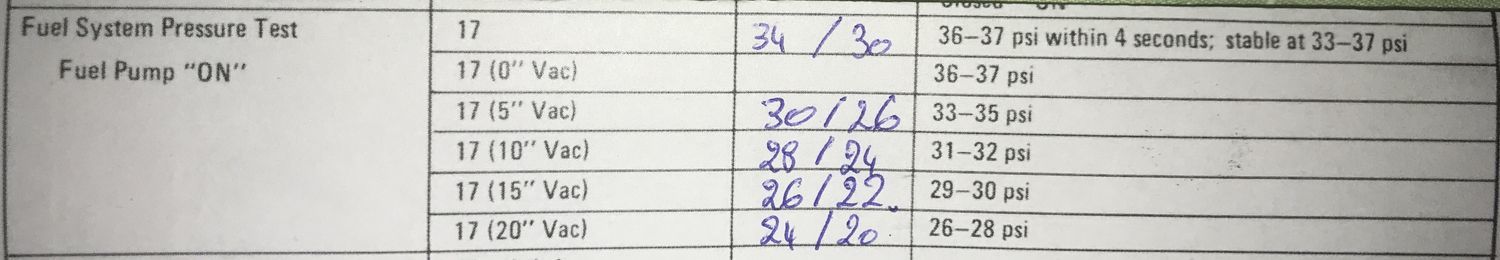 Fuel System Pressure Test 17 34 / 30 36–37 psi within 4 seconds; stable at 33–37 psi
Fuel Pump "ON" 17 (0" Vac) 36–37 psi
17 (5" Vac) 30 / 26 33–35 psi
17 (10" Vac) 28 / 24 31–32 psi
17 (15" Vac) 26 / 22 29–30 psi
17 (20" Vac) 24 / 20 26–28 psi